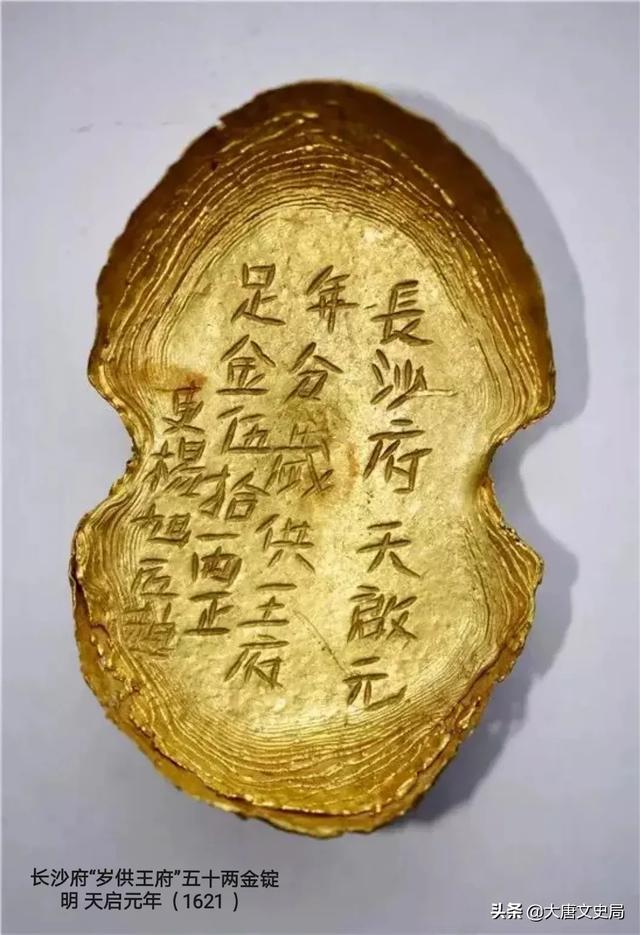 長沙府天啟元
年分歲供王府
足金伍拾両正
吏楊旭
长沙府“岁供王府”五十两金锭
明 天启元年（1621 ）
头条 @大唐文史局